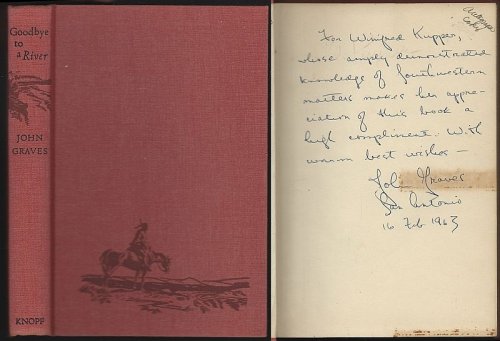 Goodbye
to
a River
JOHN
GRAVES
KNOPF
For Winifred Kupper,
whose amply demonstrated
knowledge of Southwestern
matters makes her appre-
ciation of this book a
high compliment. With
warm best wishes —
John Graves
San Antonio
16 Feb 1963